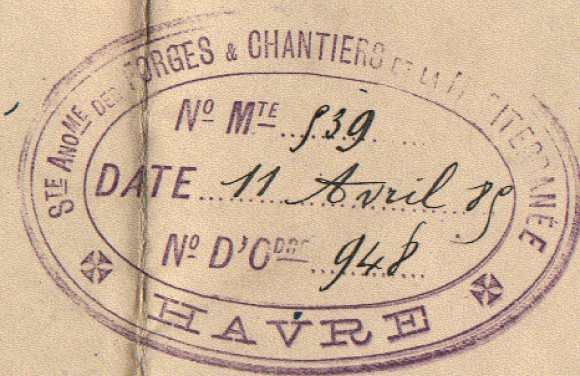 STE ANOME DES FORGES & CHANTIERS DE LA MÉDITERRANÉE
Nº MTE 539
DATE 11 Avril 89
Nº D'ODRE 948
HAVRE